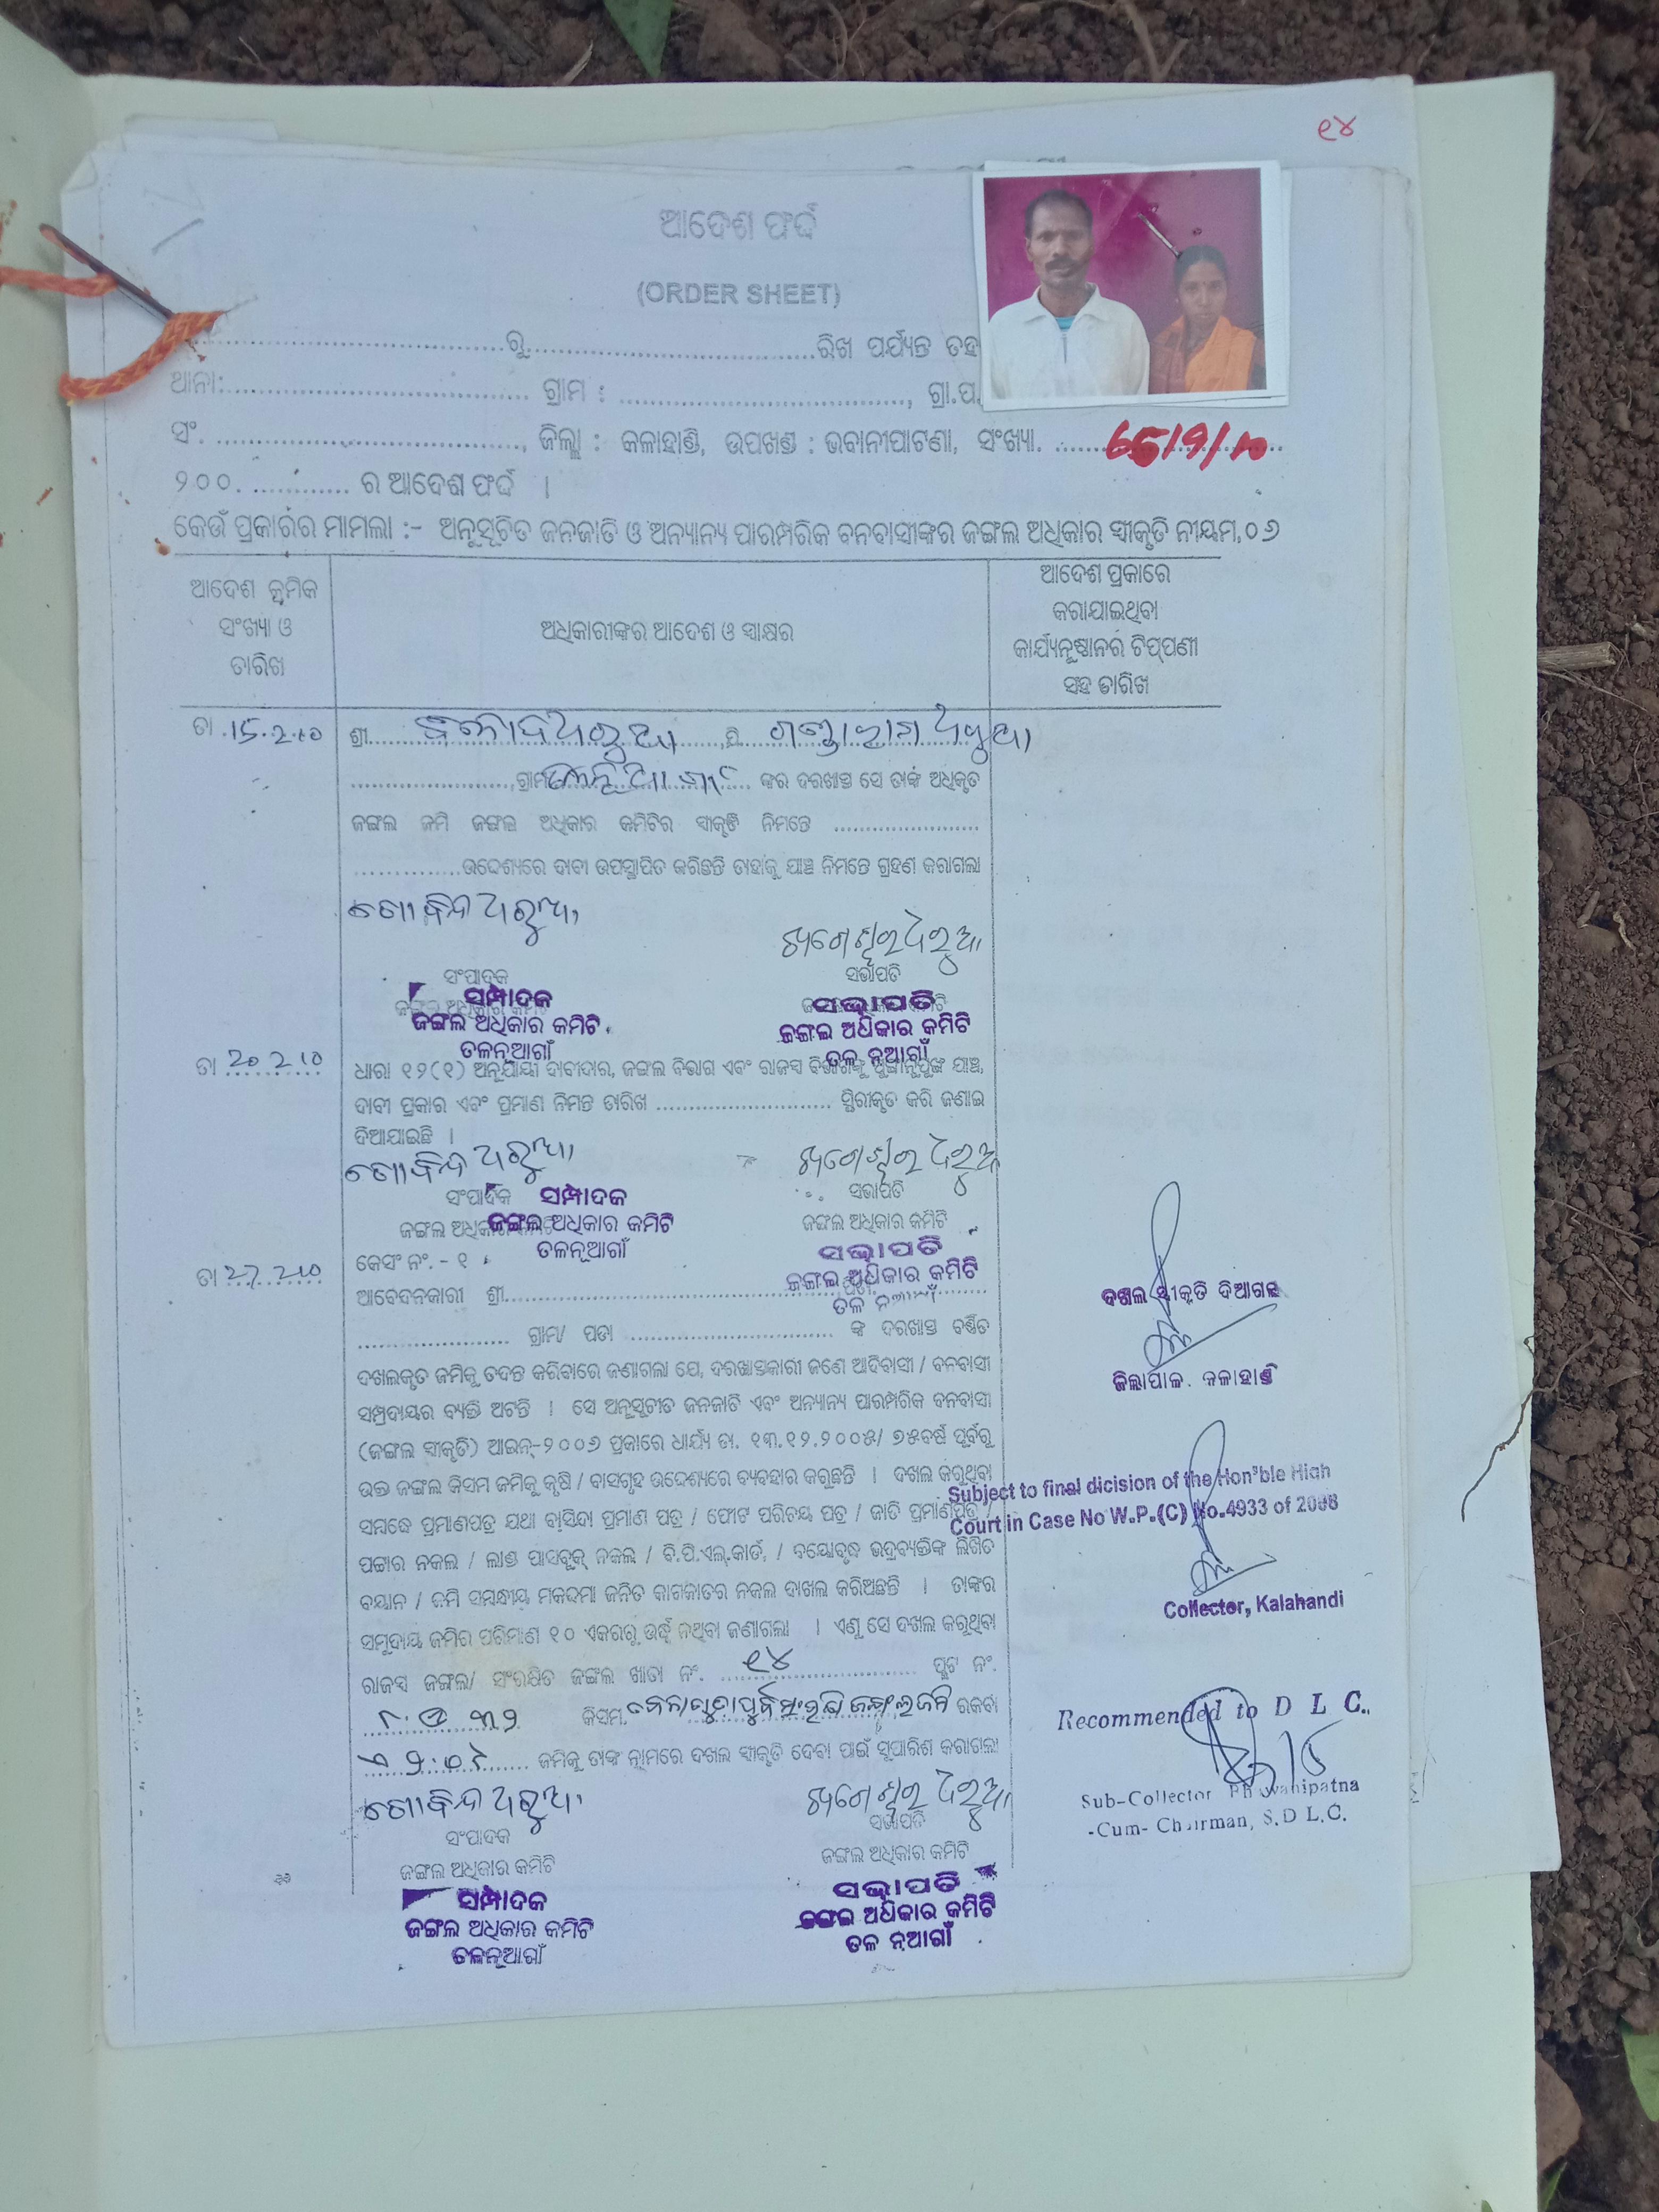 ୧୪
ଆଦେଶ ଫର୍ଦ୍ଦ
(ORDER SHEET)
.......................................ରୁ.......................................ରିଖ ପର୍ଯ୍ୟନ୍ତ ତହ
ଥାନା:........................................ ଗ୍ରାମ : ......................................, ଗ୍ରା.ପ.
ସଂ. ........................................, ଜିଲ୍ଲା : କଳାହାଣ୍ଡି, ଉପଖଣ୍ଡ : ଭବାନୀପାଟଣା, ସଂଖ୍ୟା. ........................
୨୦୦. ............. ର ଆଦେଶ ଫର୍ଦ୍ଦ ।
କେଉଁ ପ୍ରକାରର ମାମଲା :- ଅନୁସୂଚିତ ଜନଜାତି ଓ ଅନ୍ୟାନ୍ୟ ପାରମ୍ପରିକ ବନବାସୀଙ୍କର ଜଙ୍ଗଲ ଅଧିକାର ସ୍ୱୀକୃତି ନୀୟମ,୦୬
ଆଦେଶ କ୍ରମିକ
ସଂଖ୍ୟା ଓ
ତାରିଖ
ଅଧିକାରୀଙ୍କର ଆଦେଶ ଓ ସ୍ୱାକ୍ଷର
ଆଦେଶ ପ୍ରକାରେ
କରାଯାଇଥିବା
କାର୍ଯ୍ୟନୁଷ୍ଠାନର ଟିପ୍ପଣୀ
ସହ ତାରିଖ
ତା .15.2.10
ଶ୍ରୀ
......................,ଗ୍ରାମ ଙ୍କର ଦରଖାସ୍ତ ସେ ତାଙ୍କ ଅଧିକୃତ
ଜଙ୍ଗଲ ଜମି ଜଙ୍ଗଲ ଅଧିକାର କମିଟିର ସ୍ୱୀକୃତି ନିମନ୍ତେ ....................
...............ଉଦ୍ଦେଶ୍ୟରେ ଦାବୀ ଉପସ୍ଥାପିତ କରିଛନ୍ତି ତାହାକୁ ଯାଞ୍ଚ ନିମନ୍ତେ ଗ୍ରହଣ କରାଗଲା
ଗୋବିନ୍ଦ ଧରୁଆ
ଖଗେଶ୍ୱର ଧରୁଆ
ସଂପାଦକ
ସଭାପତି
ସମ୍ପାଦକ
ଜଙ୍ଗଲ ଅଧିକାର କମିଟି
ତଳନୂଆଗାଁ
ସଭାପତି
ଜଙ୍ଗଲ ଅଧିକାର କମିଟି
ତଳ ନୂଆଗାଁ
ତା 20.2.10
ଧାରା ୧୨(୧) ଅନୁଯାୟୀ ଦାବୀଦାର, ଜଙ୍ଗଲ ବିଭାଗ ଏବଂ ରାଜସ୍ୱ ବିଭାଗଙ୍କୁ ପୁଙ୍ଖାନୁପୁଙ୍ଖ ଯାଞ୍ଚ,
ଦାବୀ ପ୍ରକାର ଏବଂ ପ୍ରମାଣ ନିମନ୍ତ ତାରିଖ ......................... ସ୍ଥିରୀକୃତ କରି ଜଣାଇ
ଦିଆଯାଇଛି ।
ଗୋବିନ୍ଦ ଧରୁଆ
ଖଗେଶ୍ୱର ଧରୁଆ
ସଂପାଦକ
ସଭାପତି
ଜଙ୍ଗଲ ଅଧିକାର କମିଟି
ସମ୍ପାଦକ
ଜଙ୍ଗଲ ଅଧିକାର କମିଟି
ତଳନୂଆଗାଁ
ସଭାପତି
ଜଙ୍ଗଲ ଅଧିକାର କମିଟି
ତଳ
ତା 27.2.10
କେସଂ ନଂ. - ୧
ଆବେଦନକାରୀ ଶ୍ରୀ
...................... ଗ୍ରାମ/ ପଡା ............................. ଙ୍କ ଦରଖାସ୍ତ ବର୍ଣ୍ଣିତ
ଦଖଲକୃତ ଜମିକୁ ତଦନ୍ତ କରିବାରେ ଜଣାଗଲା ଯେ, ଦରଖାସ୍ତକାରୀ ଜଣେ ଆଦିବାସୀ / ବନବାସୀ
ସମ୍ପ୍ରଦାୟର ବ୍ୟକ୍ତି ଅଟନ୍ତି । ସେ ଅନୁସୂଚୀତ ଜନଜାତି ଏବଂ ଅନ୍ୟାନ୍ୟ ପାରମ୍ପରିକ ବନବାସୀ
(ଜଙ୍ଗଲ ସ୍ୱୀକୃତି) ଆଇନ୍-୨୦୦୬ ପ୍ରକାରେ ଧାର୍ଯ୍ୟ ତା. ୧୩.୧୨.୨୦୦୫/ ୭୫ବର୍ଷ ପୂର୍ବରୁ
ଉକ୍ତ ଜଙ୍ଗଲ କିସମ ଜମିକୁ କୃଷି / ବାସଗୃହ ଉଦ୍ଦେଶ୍ୟରେ ବ୍ୟବହାର କରୁଛନ୍ତି । ଦଖଲ କରୁଥିବା
ସମ୍ବନ୍ଧେ ପ୍ରମାଣପତ୍ର ଯଥା ବାସିନ୍ଦା ପ୍ରମାଣ ପତ୍ର / ଫୋଟ ପରିଚୟ ପତ୍ର / ଜାତି ପ୍ରମାଣପତ୍ର /
ପଟ୍ଟାର ନକଲ / ଲାଣ୍ଡ ପାସବୁକ୍ ନକଲ / ବି.ପି.ଏଲ୍.କାର୍ଡ, / ବୟୋବୃଦ୍ଧ ଭଦ୍ରବ୍ୟକ୍ତିଙ୍କ ଲିଖିତ
ବୟାନ / ଜମି ସମ୍ବନ୍ଧୀୟ ମକଦ୍ଦମା ଜନିତ କାଗଜାତର ନକଲ ଦାଖଲ କରିଅଛନ୍ତି । ତାଙ୍କର
ସମୁଦାୟ ଜମିର ପରିମାଣ ୧୦ ଏକରରୁ ଉର୍ଦ୍ଧ୍ୱ ନଥିବା ଜଣାଗଲା । ଏଣୁ ସେ ଦଖଲ କରୁଥିବା
ରାଜସ୍ୱ ଜଙ୍ଗଲ/ ସଂରକ୍ଷିତ ଜଙ୍ଗଲ ଖାତା ନଂ. ୧୪ ପ୍ଲଟ ନଂ.
କିସମ ରକବା
ଜମିକୁ ତାଙ୍କ ନାମରେ ଦଖଲ ସ୍ୱୀକୃତି ଦେବା ପାଇଁ ସୁପାରିଶ କରାଗଲା
ଗୋବିନ୍ଦ ଧରୁଆ
ଖଗେଶ୍ୱର ଧରୁଆ
ସଂପାଦକ
ସଭାପତି
ଜଙ୍ଗଲ ଅଧିକାର କମିଟି
ଜଙ୍ଗଲ ଅଧିକାର କମିଟି
ସମ୍ପାଦକ
ଜଙ୍ଗଲ ଅଧିକାର କମିଟି
ତଳନୂଆଗାଁ
ସଭାପତି
ଜଙ୍ଗଲ ଅଧିକାର କମିଟି
ତଳ ନୂଆଗାଁ
ଦଖଲ ସ୍ୱୀକୃତି ଦିଆଗଲା
ଜିଲ୍ଲାପାଳ. କଳାହାଣ୍ଡି
Subject to final dicision of the Hon'ble High
Court in Case No W.P.(C) No.4933 of 2008
Collector, Kalahandi
Recommended to D L C.
Sub-Collector Bhawanipatna
-Cum- Chairman, S.D L.C.